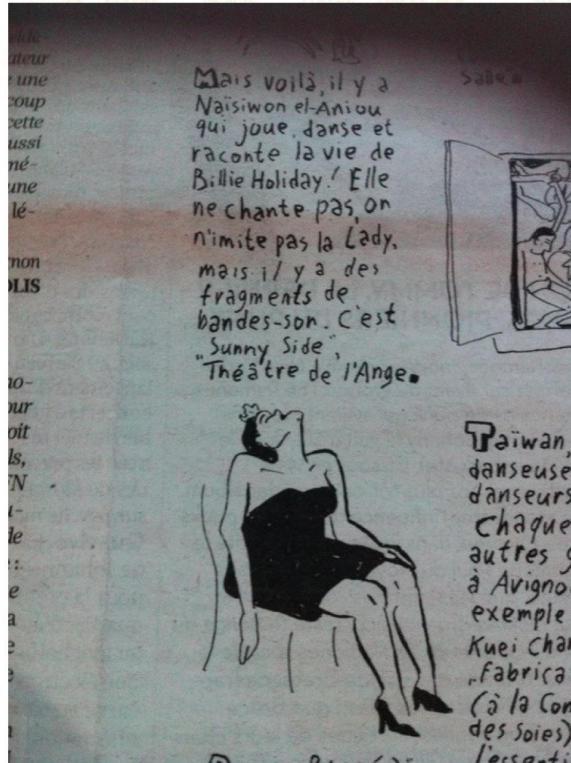 ateur
une
coup
cette
ussi
mé-
une
lé-
non
OLIS
no-
our
oit
ls,
FN
u-
de
e :
e
a
e
e
a
Salle
Mais voilà, il y a
Naïsiwon el-Aniou
qui joue, danse et
raconte la vie de
Billie Holiday! Elle
ne chante pas, on
n'imite pas la Lady,
mais il y a des
fragments de
bandes-son. C'est
"Sunny Side",
Théâtre de l'Ange.
Taïwan,
danseuse
danseurs
Chaque
autres
à Avigno
exemple
Kuei Cha
"Fabrica
(à la Con
des Soies)
l'essenti